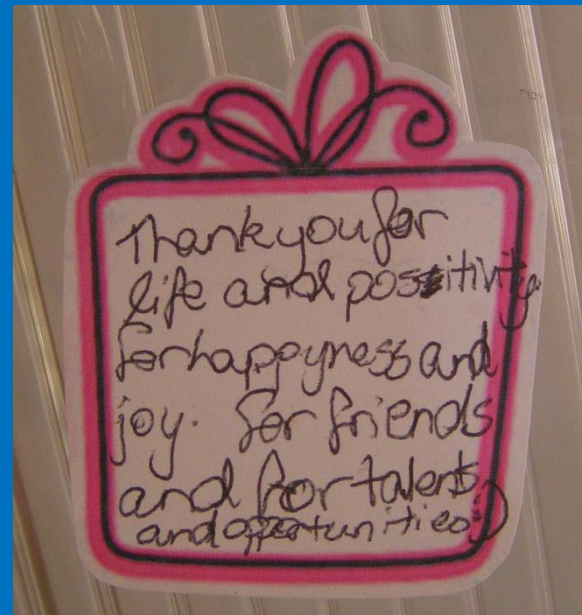 Thank you for
life and positivity
for happyness and
joy. for friends
and for talents
and opportunities :)